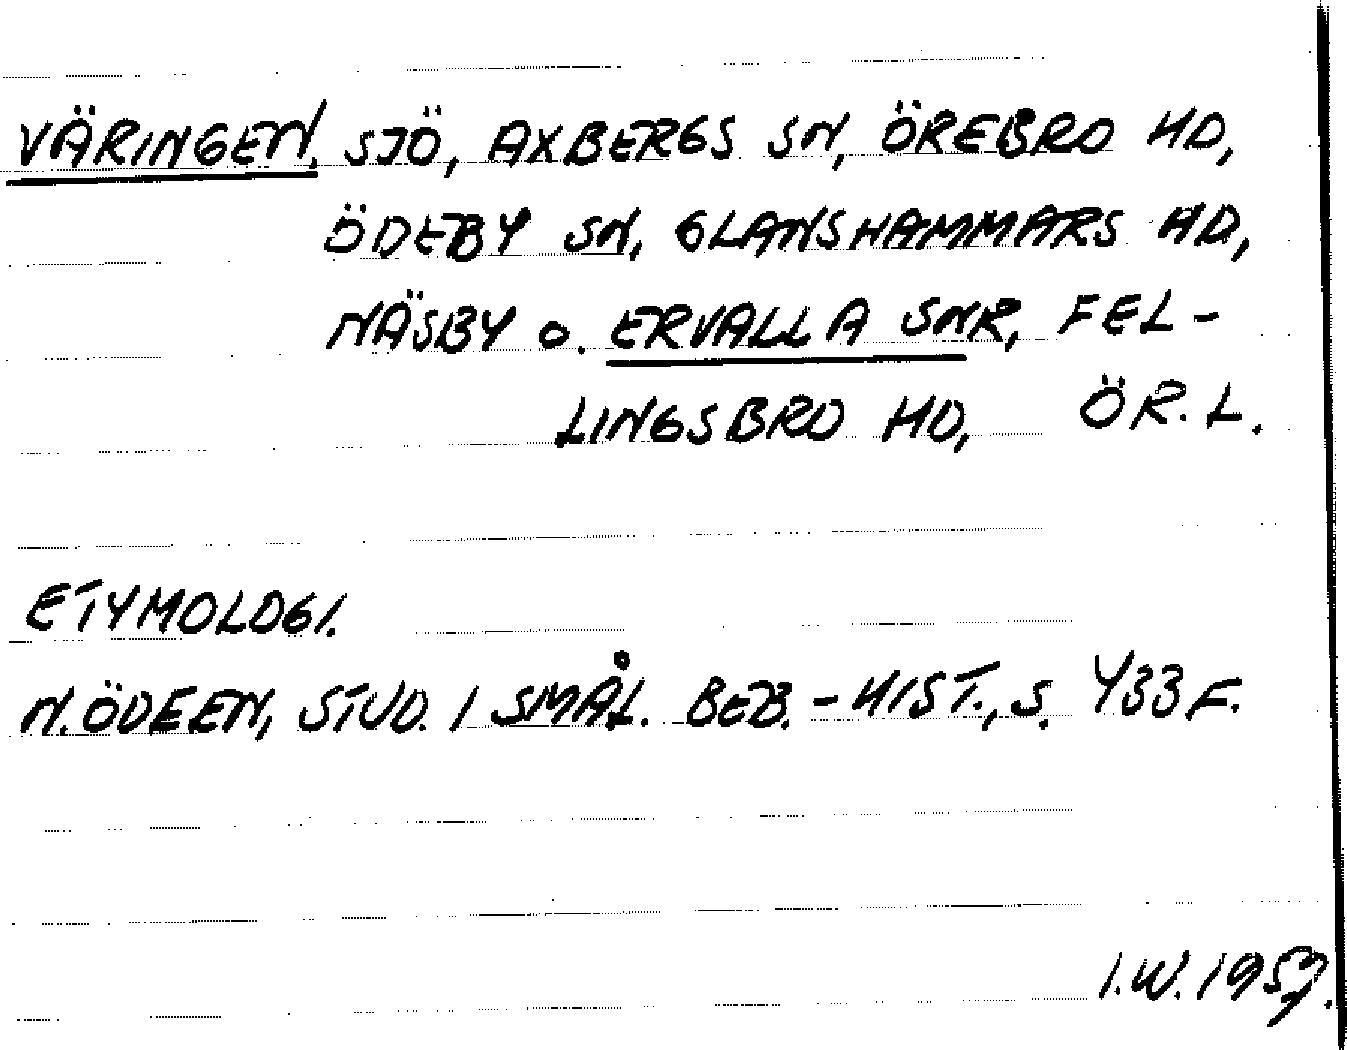 VÄRINGEN, SJÖ, AXBERGS SN, ÖREBRO HD,
ÖDEBY SN, GLANSHAMMARS HD,
NÄSBY o. ERVALLA SNR, FEL-
LINGSBRO HD, ÖR. L.
ETYMOLOGI.
N. ÖDEEN, STUD. I SMÅL. BEB.-HIST., S. 433 F.
I.W. 1959.